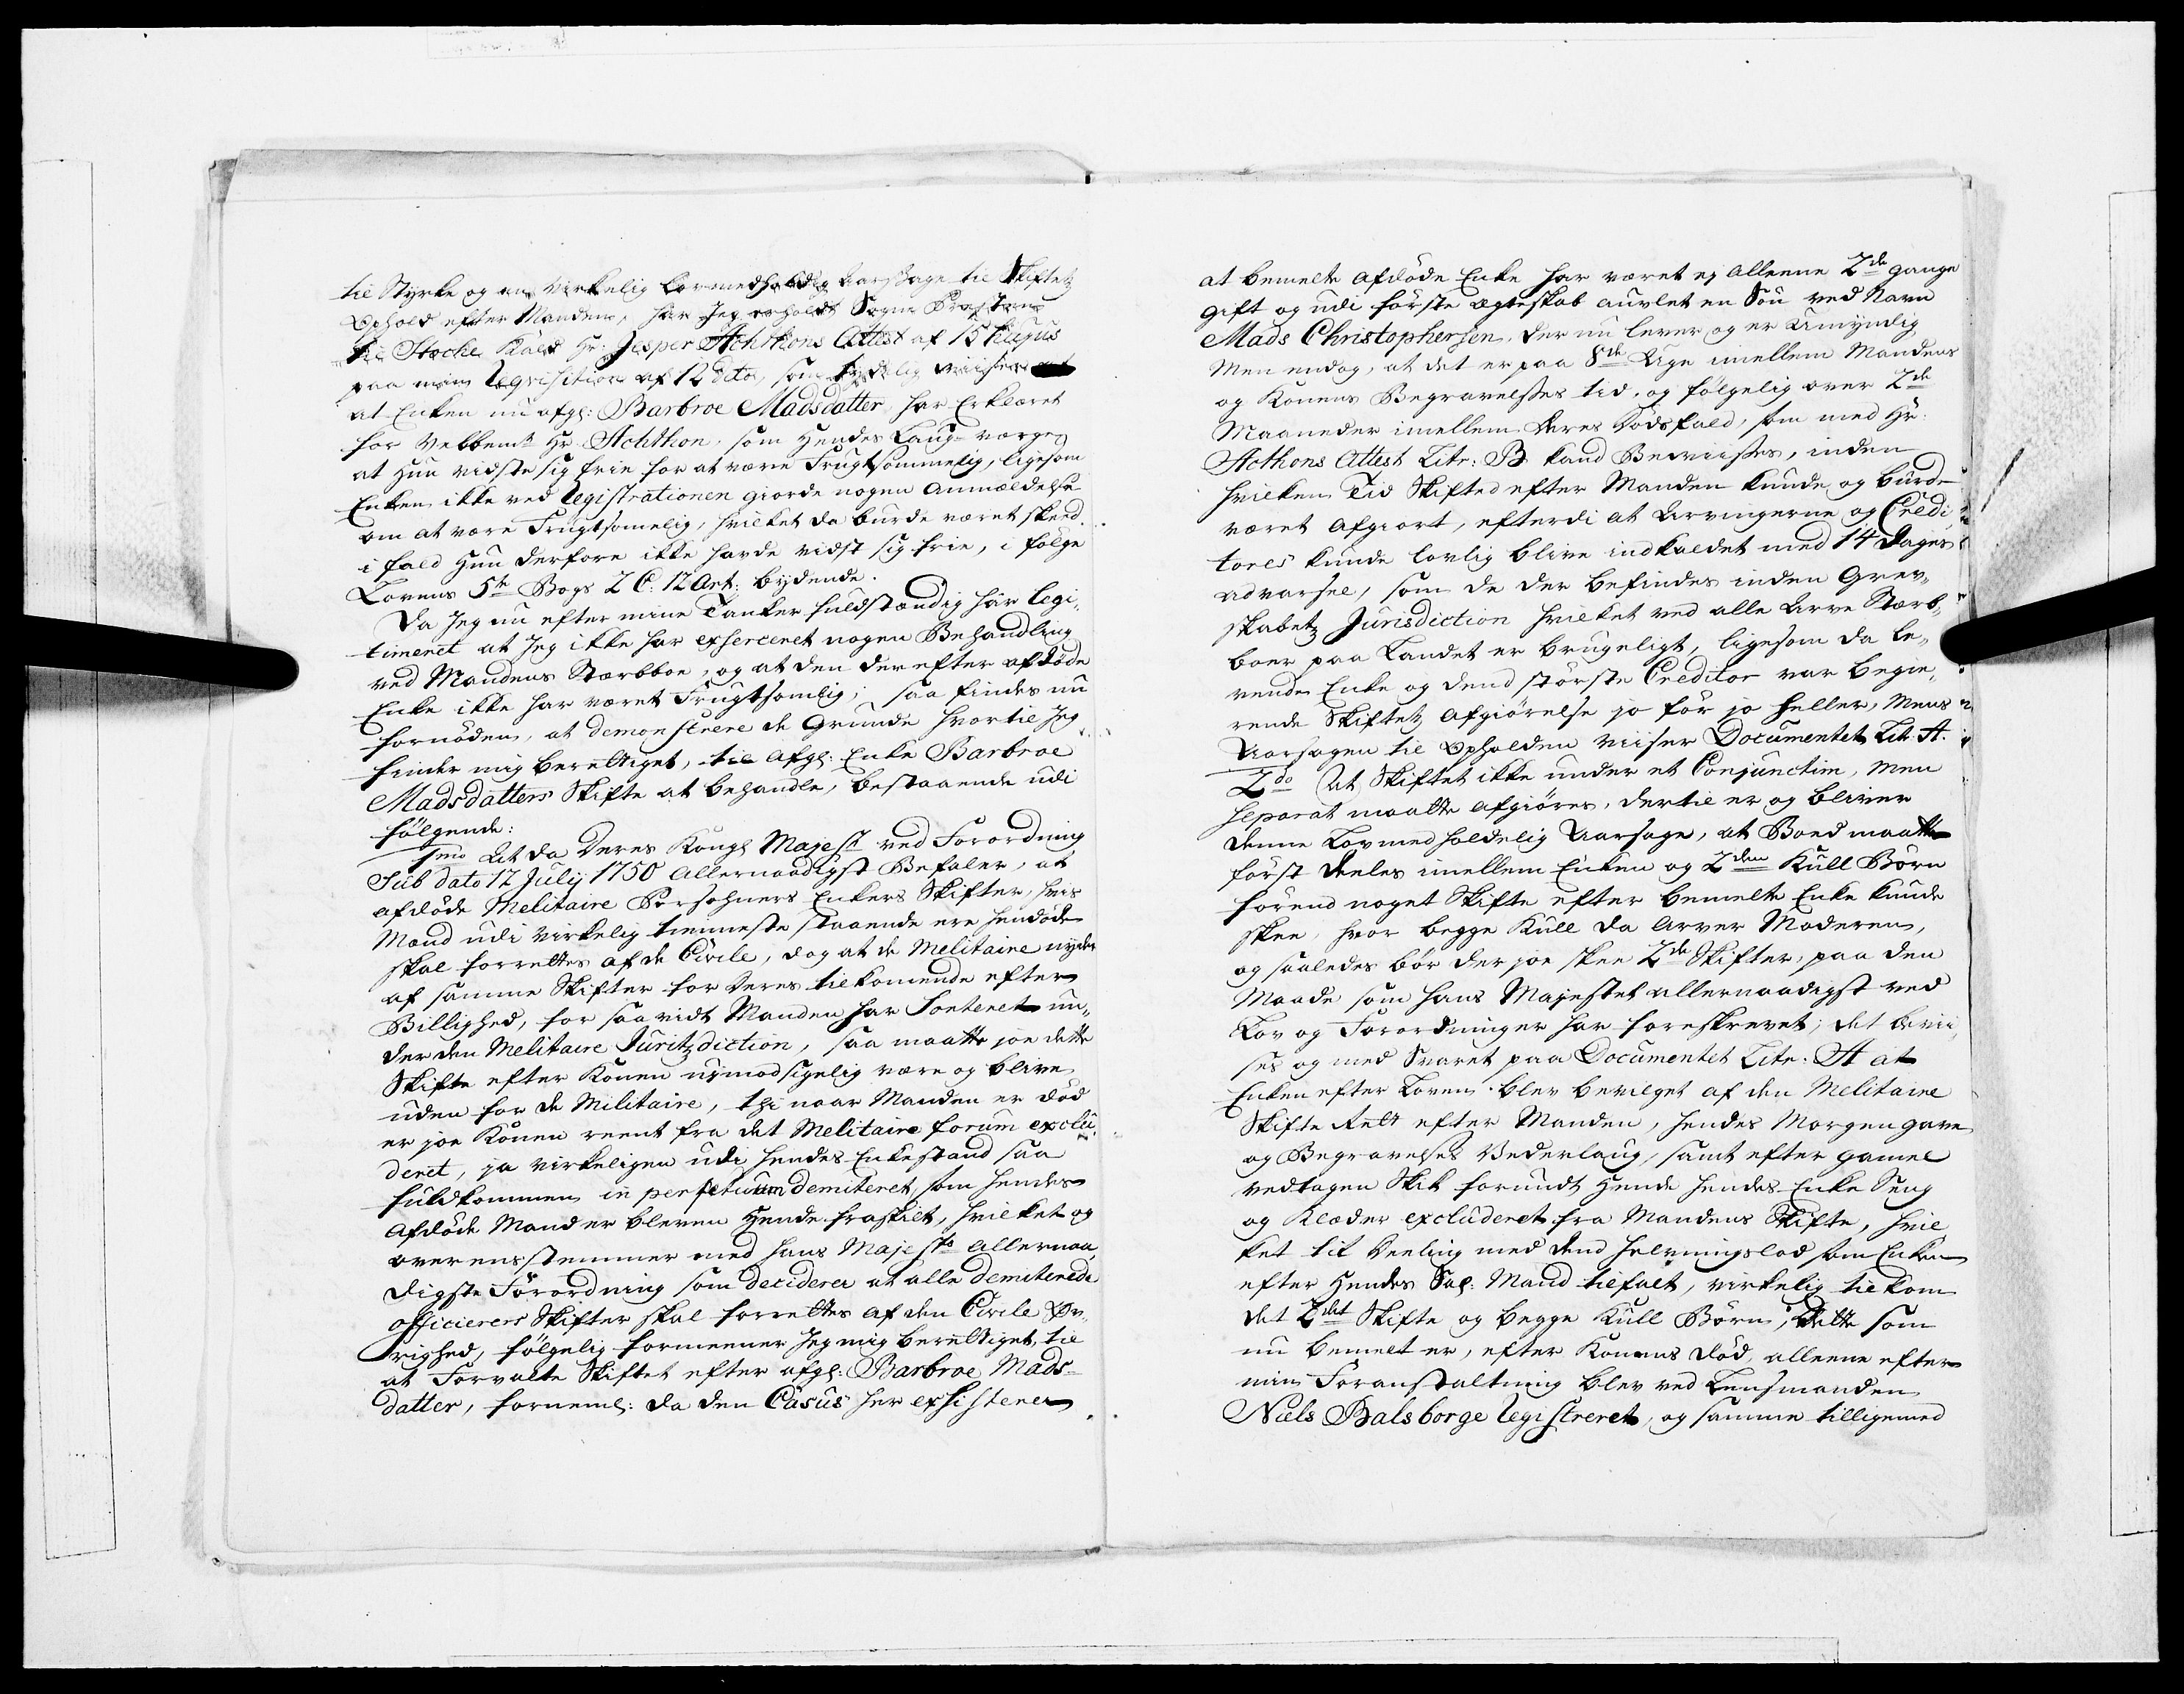 til Styrke og en Virkelig lovmedholdig Aarsage til Skiftetz
Ophold efter Manden, har Jeg erholdt Sogne Præstens
til Stocke Kald Hr: Jesper Achthons Attest af 15 Augus
paa min Reqvisition af 12 dito, som tydelig viiser
at Enken nu afg: Barbroe Madsdatter har Erklæret
for Velbem:te Hr Achthon, som Hendes Laug-værge
at Hun vidste sig frie for at være Frugtsommelig, ligesom
Enken ikke ved Registrationen giorde nogen Anmældelse
om at være Frugtsomelig, hvilket da burde været skeed
i fald Hun derfore ikke havde vidst sig frie, i følge
Lovens 5te Bogs 2 C: 12 Art: bydende.
Da Jeg nu efter mine Tanker fuldstændig har legi,,
timeret at Jeg ikke har exserceret nogen Behandling
ved Mandens Stærboe, og at den derefter afdøde
Enke ikke har været Frugtsomlig; saa findes nu
fornøden, at demonstrere de Grunde hvortil Jeg
finder mig berettiget, til afg: Enke Barbroe
Madsdatters Skifte at behandle, bestaaende udi
følgende:
1mo At da Deres Kongl Majest ved Forordning
Sub dato 17 Julij 1750 allernaadigst Befaler, at
afdøde Melitaire Persohners Enkers Skifter, hvis
Mænd udi virkelig tienneste staaende ere hendøde
skal forrettes af de Civile, dog at de Melitaire nyder
af samme Skifter for deres tilkomende efter
Billighed, for saavidt Manden har Sorteret un,,
der den Melitaire Juritzdiction, saa maatte joe dette
Skifte efter Konen uimodsigelig være og blive
uden for de Militaire, thi naar Manden er død
er joe Konen reent fra det Melitaire forum exclu,,
deret, ja virkeligen udi hendes Enkestand saa
fuldkommen in perpetuum demiteret, som hendes
Afdøde Mand er bleven Hende fraskilt, hvilket og
overensstemmer med hans Majests allernaa,,
digste Forordning som deciderer at alle demiterede
officierers Skifter skal forrettes af den Civile Øv,,
righed, følgelig formeener Jeg mig berettiget til
at Forvalte Skiftet efter afg: Barbroe Mads-
datter, fornemel: da den Casus her exsisterer
at bemelte afdøde Enke har været ej alleene 2de gange
gift og udi første ægteskab auvlet en Søn ved Navn
Mads Christophersen, der nu lever og er Umyndig
Men endog, at det er paa 8de Uge imellem Mandens
og Konens Begravelses tid, og følgelig over 2de
Maaneder imellem deres Dødsfald, som med Hr.
Acthons Attest Litr: B kand Beviises, inden
hvilken Tid Skiftet efter Manden kunde og burde
været afgiort, efterdi at Arvingerne og Credi,,
tores kunde lovlig blive indkaldet med 14 Dages
advarsel, som de der befindes inden Grev,,
skabetz Jurisdiction hvilket ved alle Arve Stærb,,
boer paa Landet er brugeligt, ligesom da le,,
vende Enke og dend største Creditor var begie,,
rende Skiftetz afgiørelse jo før jo heller, mens
Aarsagen til Opholden viiser Documentet Litr: A.
2do At Skiftet ikke under et Conjunctim, men
Separat maatte afgiøres, dertil er og bliver
denne Lovmedholdelig Aarsage, at Boed maatte
først deeles imellem Enken og 2den Kull Børn
førend noget Skifte efter bemelte Enke kunde
skee, hvor begge Kull da arver Moderen,
og saaledes bør der joe skee 2de Skifter, paa den
Maade som hans Majestet allernaadigst ved
Lov og Forordninger har foreskrevet; det bevii,,
ses og med Svaret paa Documentet Litr: A at
Enken efter Loven blev bevilget af den Melitaire
Skifte Rett efter Manden, hendes Morgengave
og Begravelses Vederlaug, samt efter gamel
vedtagen Skik forundt Hende hendes Enke Seng
og Klæder excluderet fra Mandens Skifte, hvil
ket til Deeling med dend halvningslod som Enken
efter Hendes Sal: Mand tilfalt, virkelig tilkom
det 2det Skifte og begge Kull Børn, Dette som
nu bemelt er, efter Konens død, alleene efter
min Foranstaltning blev ved Lensmanden
Niels Balsborge Registreret, og samme tilligemed